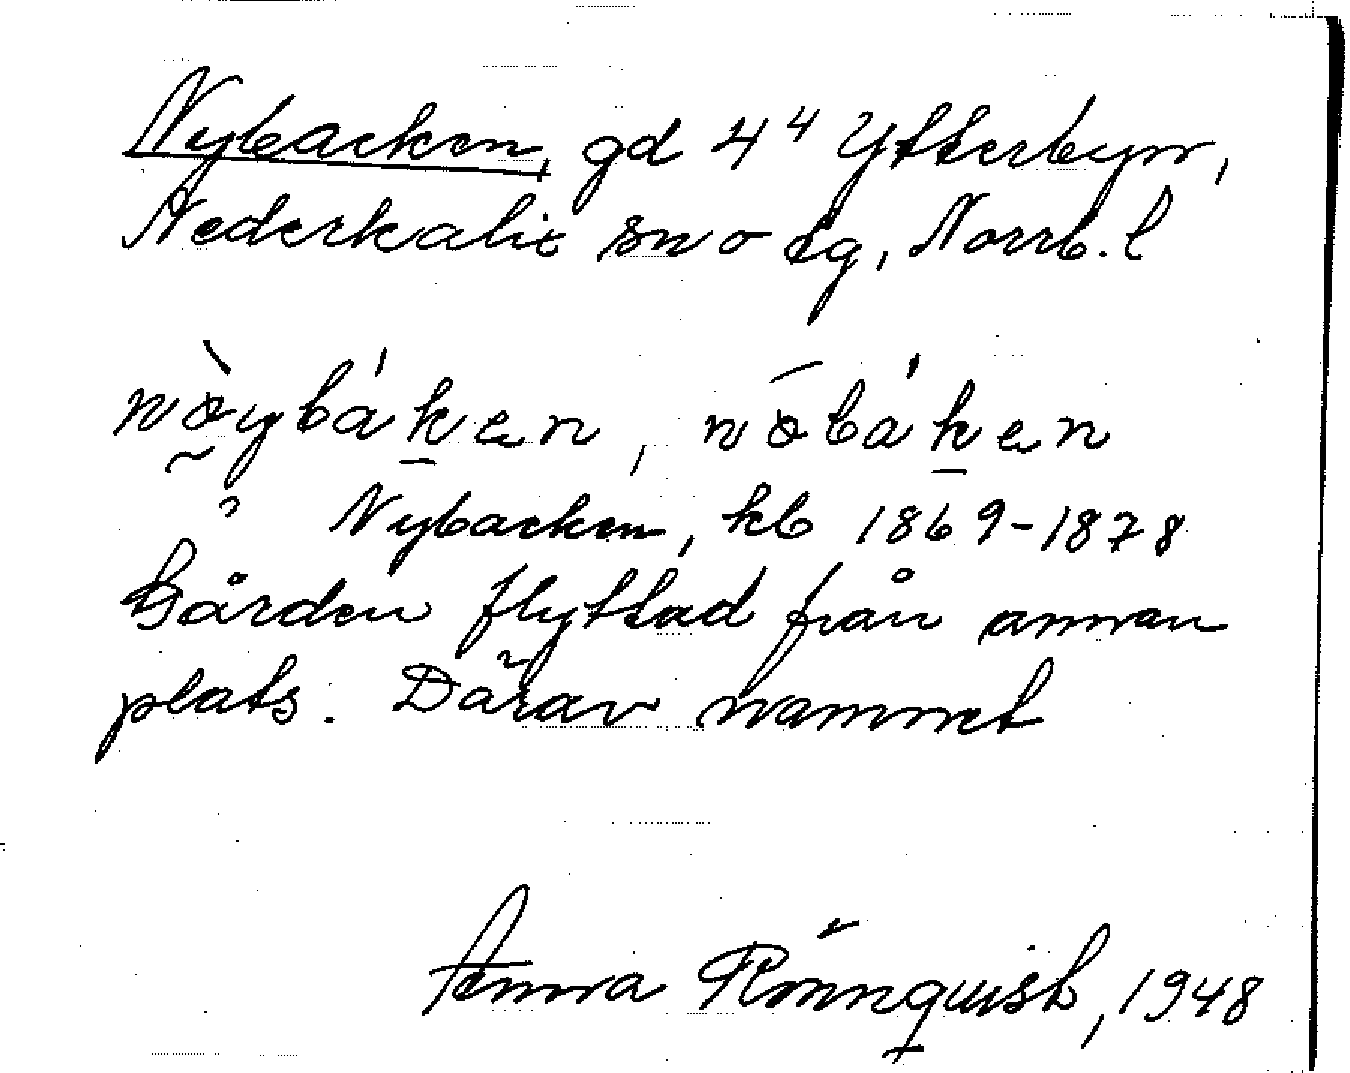 Nybacken, gd 4⁴ Ytterbyn,
Nederkalix sn o tg, Norrb. l
nø̀ybáken, nǿbáken
" Nybacken, kb 1869-1878
Gården flyttad från annan
plats. Därav namnet
Anna Rönnquist, 1948